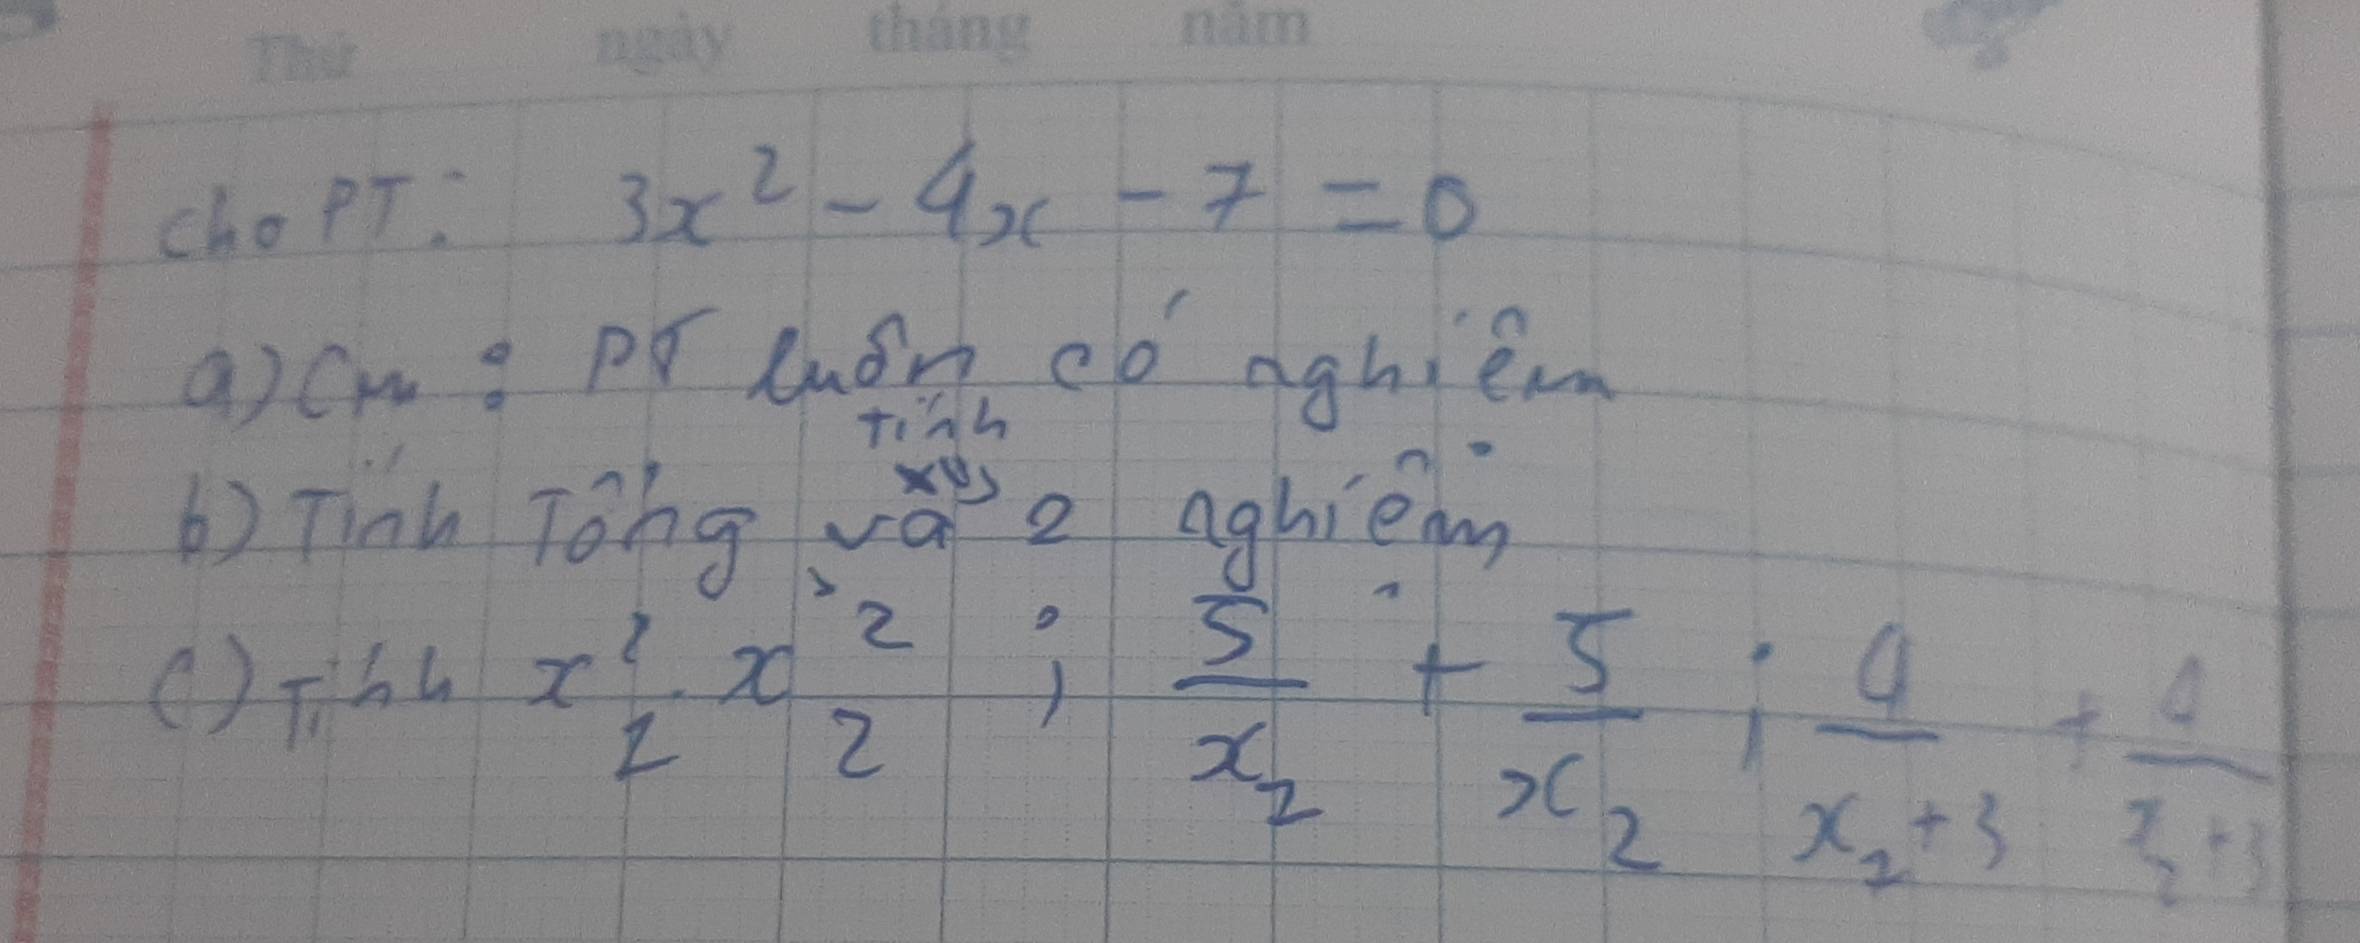 Thứ ngày tháng năm
Cho PT: 3x² - 4x - 7 = 0
a) Cm : PT luôn có nghiêm
tính
b) Tính Tổng và 2 nghiệm
c) Tính x₁² . x₂² ; 5/x₂ + 5/x₂ ; 4/x₂+3 + 4/x₂+3